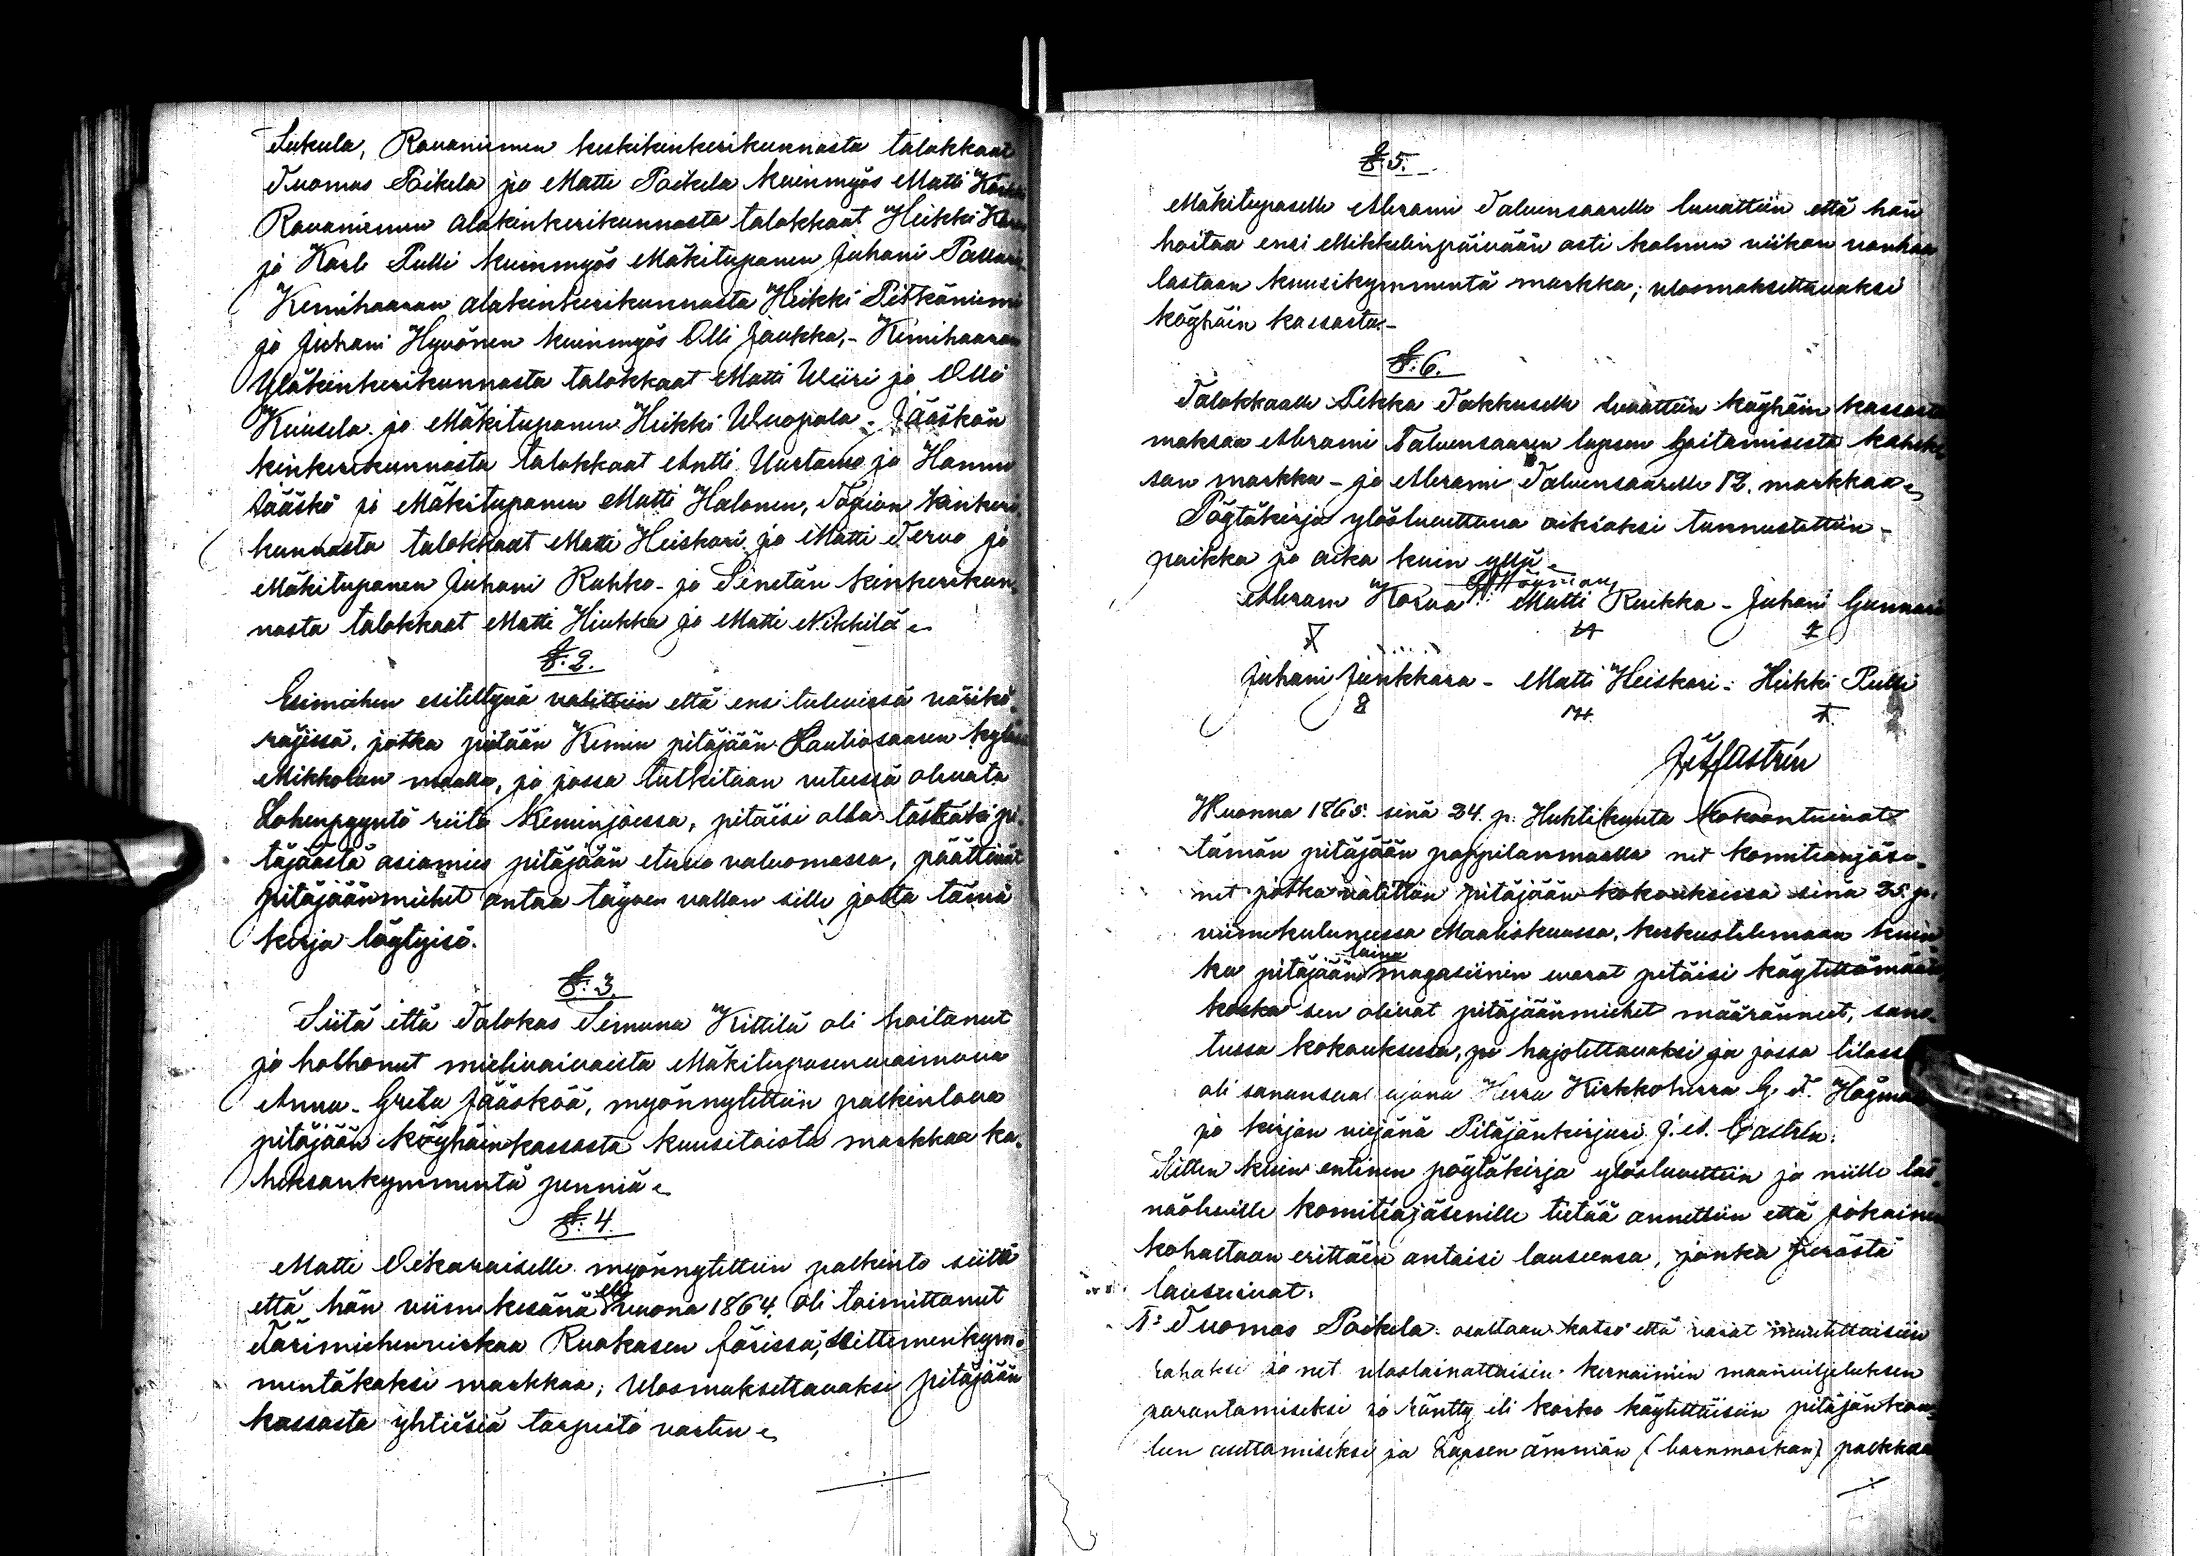 Sukula, Rovaniemen keskikinkerikunnasta talokkaat
Tuomas Poikela ja Matti Poikela kuinmyös Matti
Rovaniemen alakinkerikunnasta talokkaat Heikki
ja Karli Pulli kuinmyös Mäkitupanen Juhani
Kemihaaran alakinkerikunnasta Heikki Pitkäniemi
ja Juhani Hyvönen kuinmyös Olli Jaukka,- Kemihaaran
Yläkinkerikunnasta talokkaat Matti Wiiri ja Olli
Kuusela. ja Mäkitupanen Heikki Wuopala. Jääskön
kinkerikunnasta talokkaat Antti Uurtamo ja Hannu
Jääskö ja Mäkitupanen Matti Halonen, Tapion kinkeri
kunnasta talokkaat Matti Heiskari ja Matti Tervo ja
Mäkitupanen Juhani Ruhka- ja Sinetän kinkerikun-
nasta talokkaat Matti Hiukka ja Matti Nikkilä
§. 2.
Esimiehen esiteltyä valittiin että ensi tulevissä väriko-
räjissä, jotka pietään Kemin pitäjään Lautiosaaren kylässä
Mikkolan maalla, ja jossa tutkitaan vireissä olevata
Lohenpyyntö riita Keminjoessa, pitäisi olla tästäkin pi-
täjäästä asiamies pitäjään etuva valvomassa, päättivät
pitäjäänmiehet antaa täyven vallan sille jolta tämä
kirja löytyisi.
§. 3.
Siitä että Talokas Simuna Kittilä oli hoitanut
ja holhonut mielivaivaista Mäkitupasenvaimova
Anna-Greta Jääsköä, myönnytettiin palkintova
pitäjään köyhäinkassasta kuusitoista markkaa ka-
heksankymmentä penniä
§. 4.
Matti Oikaraiselle myönnytettiin palkinto siitä
että hän viimekesänä eli vuona 1864. oli toimittanut
Tärimiehenvirkaa Ruokasen färissä; seittemenkym-
mentäkaksi markkaa; Ulosmaksettavaksi pitäjään
kassasta yhteisiä tarpeita varten
§. 5.
Mäkitupaselle Abrami Talvensaarelle luvattiin että hän
hoitaa ensi Mikkelinpäivään asti kolmen viikon vanhaa
lastaan kuusikymmentä markka; ulosmaksettavaksi
köyhäin kassasta.-
§. 6.
Talokkaalle Pekka Takkuselle luvattiin köyhäin kassasta
maksaa Abrami Talvensaaren lapsen hoitamisesta kahek
san markka - ja Abrami Talvensaarelle 12. markkaa
Pöytäkirja ylösluvettuva oikiaksi tunnustettiin -
paikka ja aika kuin yllä.
Abram Korva Matti Ruikka - Juhani Gunnari
Juhani Junkkara - Matti Heiskari - Heikki Pulli
J. A. Castrén
Wuonna 1865. sinä 24. p. Huhtikuuta Kokoontuivat
tämän pitäjään pappilanmaalla net komiteanjäse-
net jotka valittiin pitäjään kokouksessa sinä 25. p.
viimekulunessa Maaliskuussa, keskustelemaan kuin-
ka pitäjään laina magasiinin varat pitäisi käytettämään
koska sen olivat pitäjäänmiehet määränneet, sano-
tussa kokouksessa, pu hajotettavaksi ja jossa tilassa
oli sananseat ajana Herra Kirkkoherra G. A. Högman
ja kirjan viejänä Pitäjänkirjuri J. A. Castrén.
Sitten kuin entinen pöytäkirja ylösluvettiin ja niille läs-
näoleville komiteajäsenille tietää annettiin että jokainen
kohastaan erittäin antaisi lauseensa, jonka perästä
lausuivat:
1: Tuomas Poikela. osaltaan katso että varat muutettaisiin
rahaksi ja net uloslainattaisiin kernaimin maanviljeluksen
parantamiseksi ja räntty eli korko käytettäisiin pitäjänkou-
lun auttamiseksi ja Lapsen ämmän (barnmorskan) palkkaa